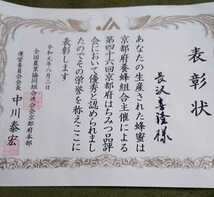 表彰状
長沢喜隆様
あなたの生産された蜂蜜は
京都府養蜂組合主催による
第四十六回京都府はちみつ品評
会において優秀と認められまし
たのでその栄誉を称えここに
表彰します
令和元年八月二日
全国農業協同組合連合会京都府本部
運営委員会会長
中川泰宏